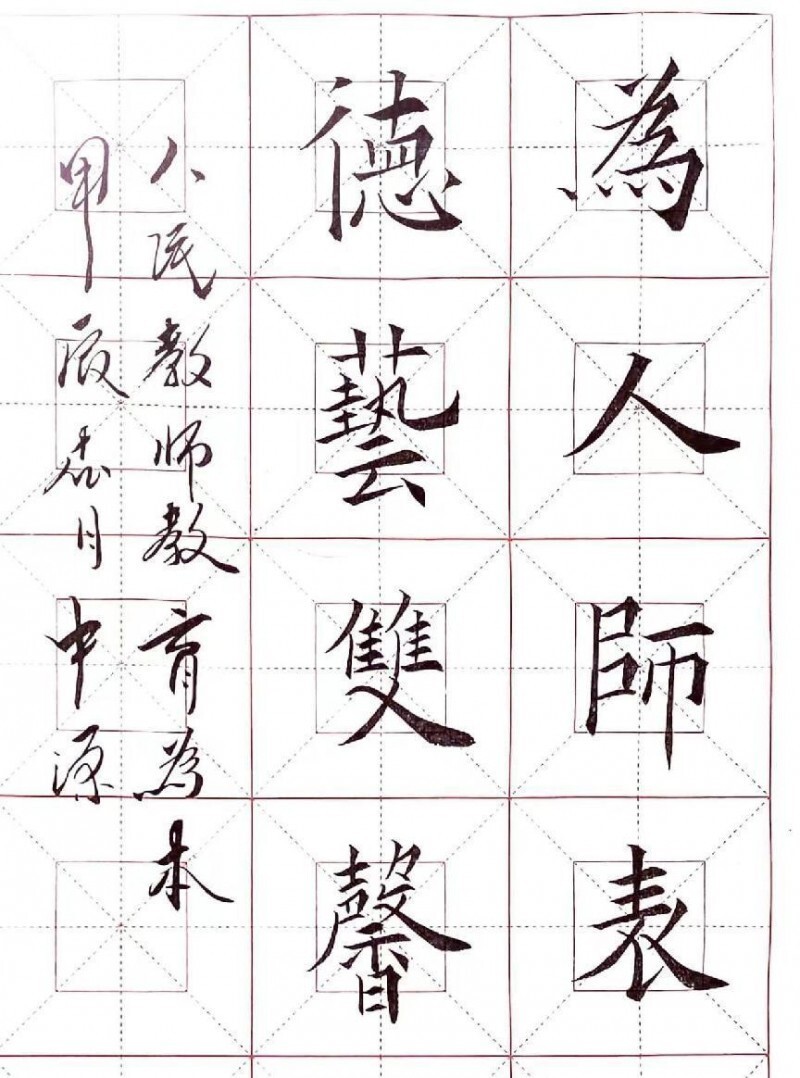 為人師表
德藝雙馨
人民教师教育為本
甲辰春月中源